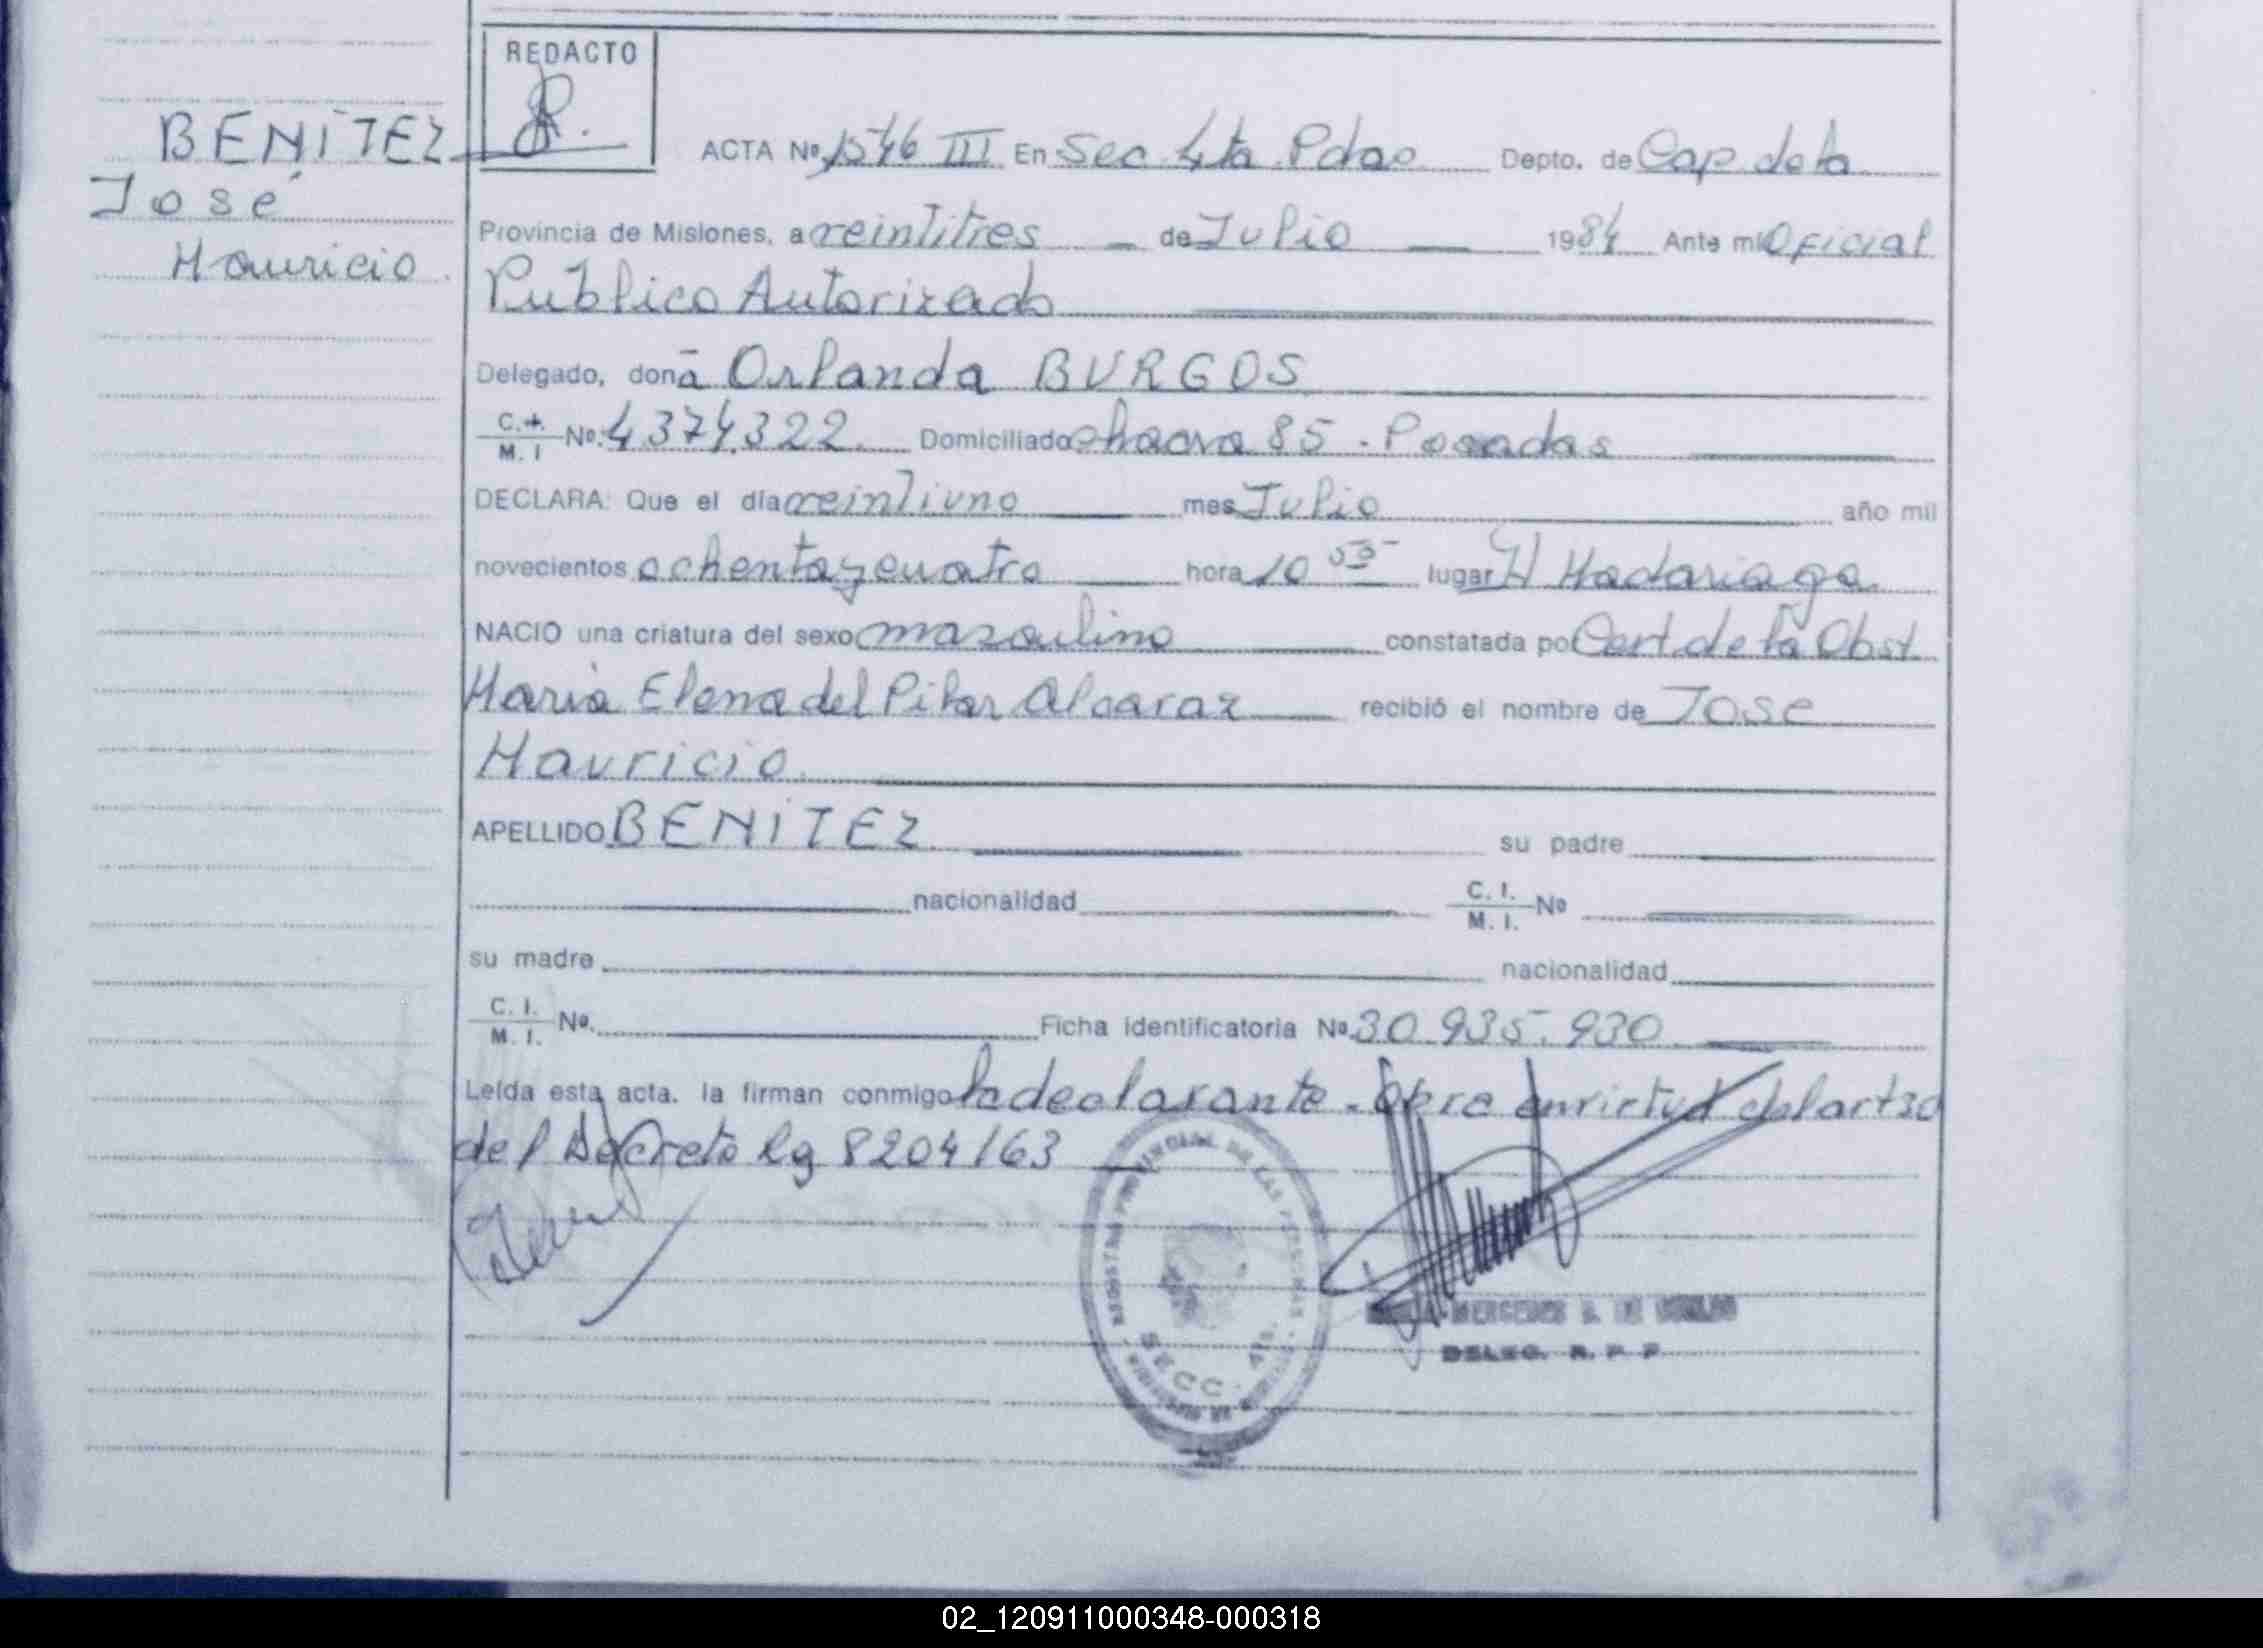 REDACTO
BENITEZ
José
Mauricio
ACTA Nº 1546 III En Sec 4ta Pdas Depto. de Cap de la
Provincia de Misiones, a veintitres de Julio 1984 Ante mi Oficial
Publico Autorizado
Delegado, doña Orlanda BURGOS
C.I. M.I Nº. 4.374.322 Domiciliado chacra 85 - Posadas
DECLARA: Que el día veintiuno mes Julio año mil
novecientos ochentaycuatro hora 10 50 lugar H Madariaga
NACIO una criatura del sexo masculino constatada po Cert. de la Obst
Maria Elena del Pilar Alcaraz recibió el nombre de Jose
Mauricio
APELLIDO BENITEZ su padre
nacionalidad C. I. M. I. Nº
su madre nacionalidad
C. I. M. I. Nº. Ficha identificatoria Nº 30.935.930
Leída esta acta. la firman conmigo la declarante. en virtud del art
del Decreto Ley 8204/63
REGISTRO PROVINCIAL DE LAS PERSONAS
SECC. 4ta.
MERCEDES
DELEG. R. P. P
02_120911000348-000318